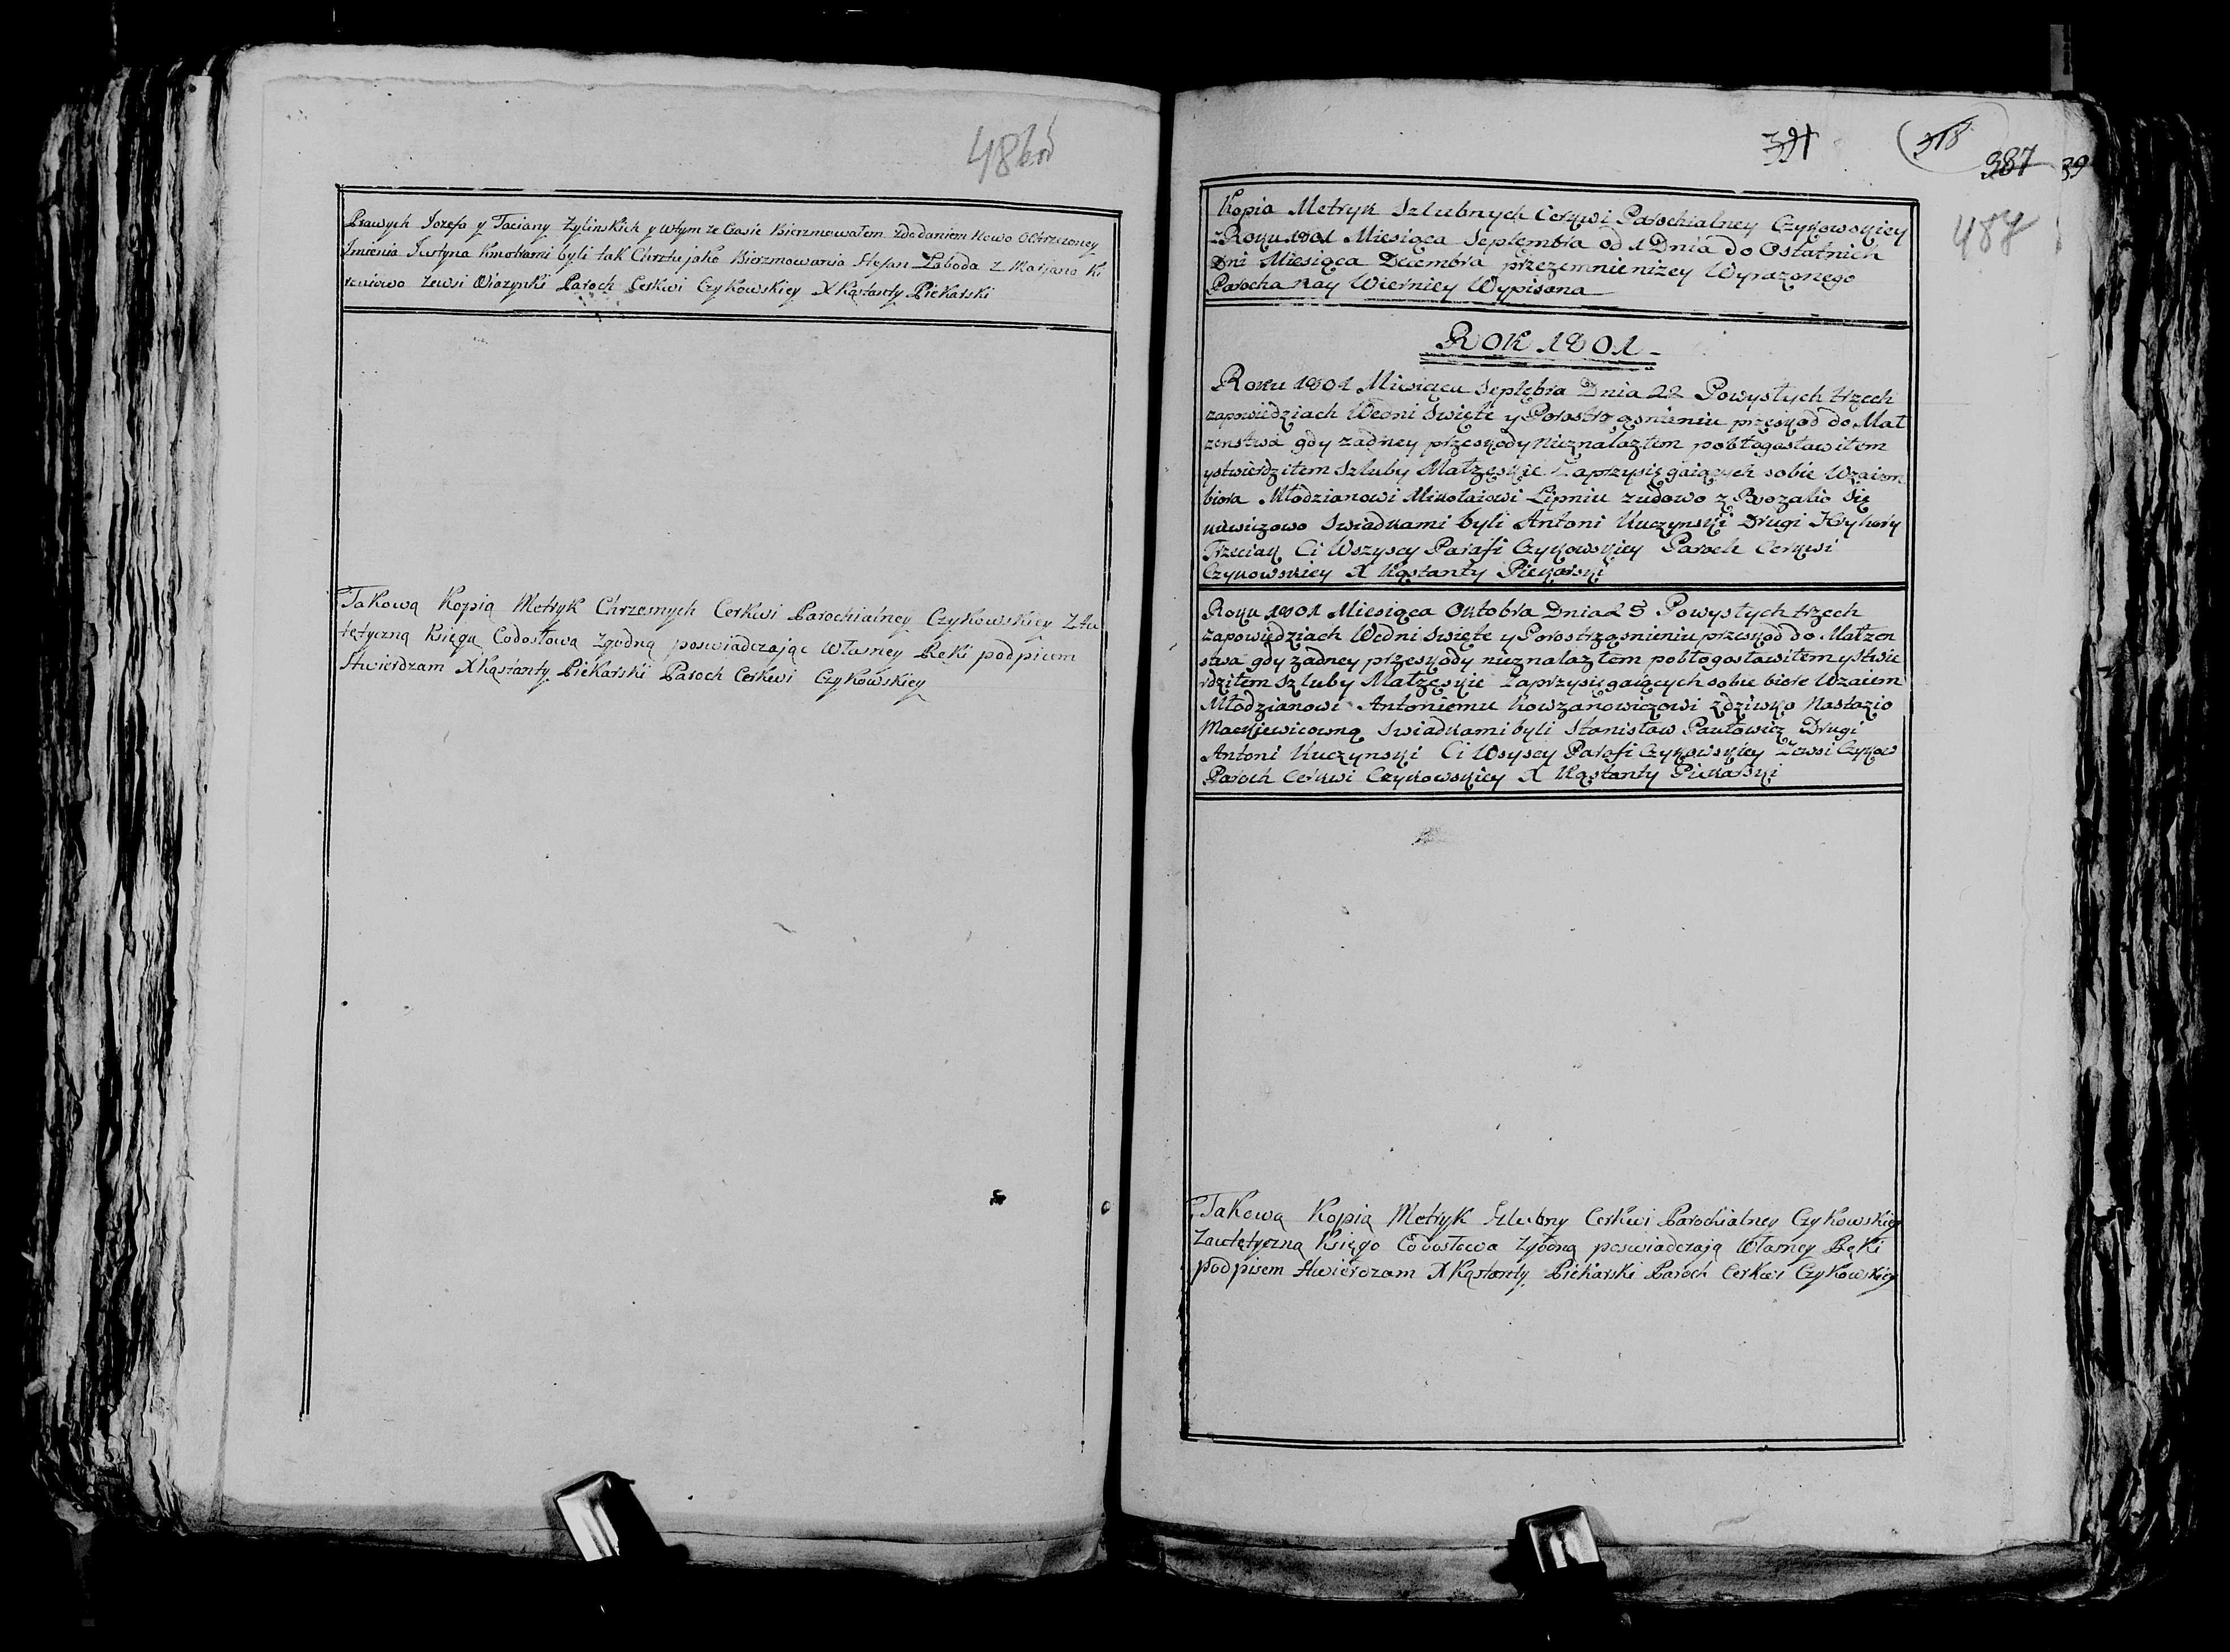 486 об
Prawych Jozefa y Taciany Zylinskich y wtym ze Czasie Bierzmowałem zdodaniem Nowo Ochrzczoney
Jmienia Justyna Kmotrami byli tak Chrztu jako Bierzmowania Stefan Łaboda z Marjano
Zewsi Wiazynki Paroch Cerkwi Czykowskiey X Kąstanty Piekarski
Takową Kopią Metryk Chrzesnych Cerkwi Parochialney Czykowskiey
Księgą Codosłowa Zgodną poswiadczając Własney Ręki podpisem
Stwierdzam X Kąstanty Piekarski Paroch Cerkwi Czykowskiey
391 318 387 39
487
Kopia Metryk Szlubnych Cerkwi Parochialney Czykowskiey
z Roku 1801 Miesiąca Septembra od 1 Dnia do Ostatnich
Dni Miesiąca Decembra przezemnie nizey Wyrazonego
Parocha nay Wierniey Wypisana
ROK 1801
Roku 1801 Miesiąca Septębra Dnia 22 Powysłych trzech
zapowiedziach Wedni Swięte y Porostrząsnieniu przeskod do Mał
zenstwa gdy zadney przeskody nieznalazłem pobłogosławiłem
ystwierdziłem Szluby Małzęskie Zaprzysięgaiących sobie Wzaiem
biora Młodzianowi Mikołaiowi Lipniu zudowo z Rozalio Się
kiewiczowo Swiadkami byli Antoni Kuczynski Drugi Hryhory
Trzeciak Ci Wszyscy Parafi Czykowskiey Paroch Cerkwi
Czykowskiey X Kąstanty Piekarski
Roku 1801 Miesiąca Oktobra Dnia 25 Powysłych trzech
zapowiędziach Wedni Swięte y Porostrząsnieniu przeskod do Małzen
stwa gdy zadney przeskody nieznalazłem pobłogosławiłem ystwie
rdziłem Szluby Małzęskie Zaprzysięgaiących sobie biore Wzaiem
Młodzianowi Antoniemu Kowzanowiczowi zdziwko Nastazio
Mackiewicowną Swiadkami byli Stanisław Pawłowicz Drugi
Antoni Kuczynski Ci Wsyscy Parafi Czykowskiey Zewsi Czykow
Paroch Cerkwi Czykowskiey X Kąstanty Piekarski
Takową Kopią Metryk Szlubny Cerkwi Parochialney Czykowskiey
Zautętyczną Księgo Codosłowa Zgodną poswiadczają Własney Ręki
podpisem Stwierdzam X Kąstanty Piekarski Paroch Cerkwi Czykowskiey